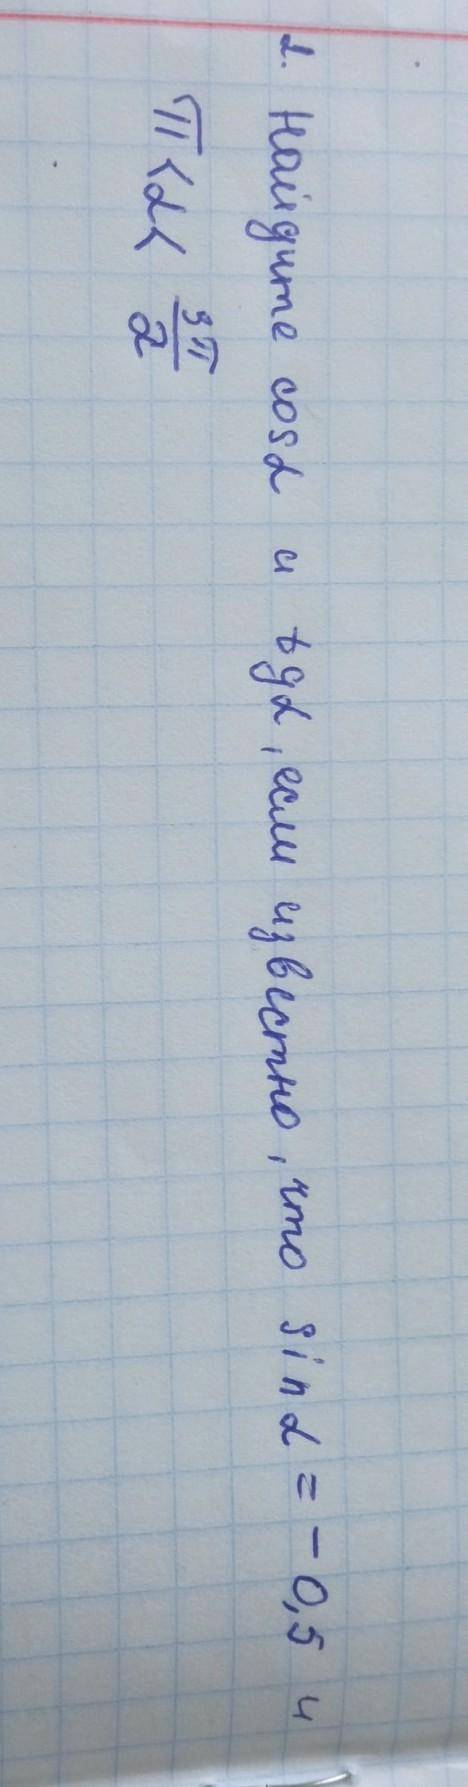 2. Найдите cosα и tgα, если известно, что sinα = -0,5 и
π < α < 3π/2